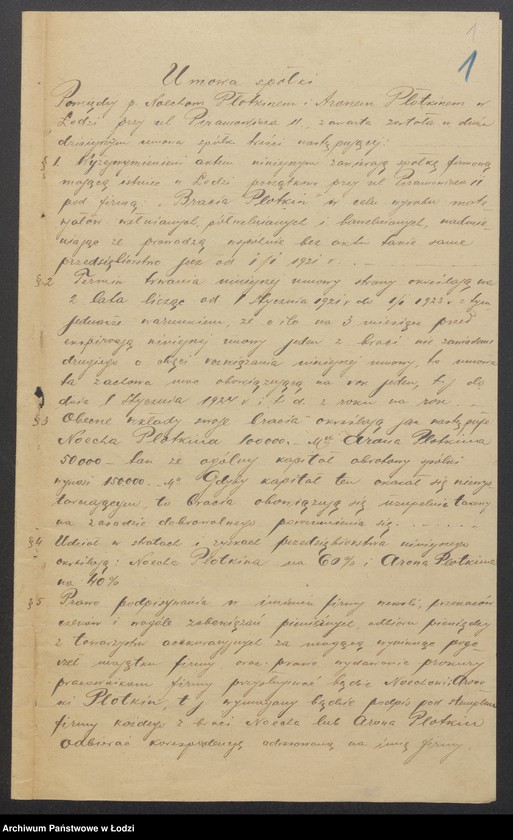 1
1
Umowa spółki
Pomiędzy p. Noechem Płotkinem i Aronem Płotkinem w
Łodzi przy ul Piramowicza 11., zawarta została w dniu
dzisiejszym umowa spółki treści następującej:
§ 1. Wyżej wymienieni aktem niniejszym zawierają spółkę firmową
mającą istnieć w Łodzi początkowo przy ul Piramowicza 11
pod firmą: "Bracia Płotkin" w celu wyrobu mate
rjałów wełnianych, półwełnianych i bawełnianych, nadmie
niając że prowadzą wspólnie bez aktu takie same
przedsiębiorstwo już od 1/I 1921 r.
§ 2 Termin trwania niniejszej umowy strony określają na
2 lata licząc od 1 Stycznia 1921 do 1/I 1923 r. z tym
jednakże warunkiem, że o ile na 3 miesiące przed
ekspiracją niniejszej umowy jeden z braci nie zawiadomi
drugiego o chęci rozwiązania niniejszej umowy, to umowa
ta zachowa moc obowiązującą na rok jeden, t.j. do
dnia 1 Stycznia 1924 r i t. d. z roku na rok.
§ 3 Obecne wkłady swoje bracia określają jak następuje
Noecha Płotkina 100000.- Mk Arona Płotkina
50000 - tak że ogólny kapitał obrotowy spółki
wynosi 150000. Mk Gdyby kapitał ten okazał się niewys
tarczającym, to bracia obowiązują się uzupełnić takowy
na zasadzie dobrowolnego porozumienia się.
§ 4 Udział w stratach i zyskach przedsiębiorstwa niniejszego
określają: Noecha Płotkina na 60% i Arona Płotkina
na 40%
§ 5 Prawo podpisywania w imieniu firmy weksli, przekazów
czeków i wogóle zobowiązań pieniężnych, odbioru pieniędzy
z towarzystw asekuracyjnych za mogącą wyniknąć pogo
rzel majątku firmy oraz prawo wydawania prokury
pracownikom firmy przysługiwać będzie Noechowi i Arono
wi Płotkin, t j wymagany będzie podpis pod stemplem
firmy każdego z braci Noecha lub Arona Płotkin
odbierać korespondencję adresowaną na imię firmy.
Archiwum Państwowe w Łodzi